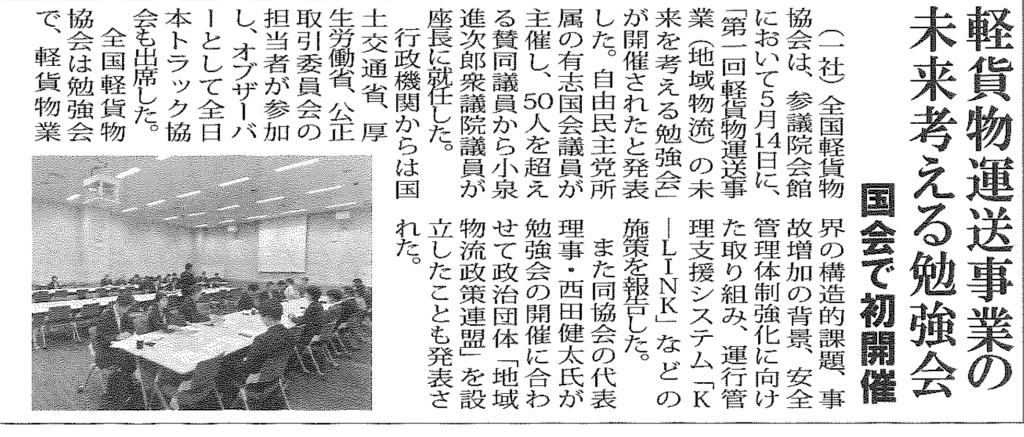 軽貨物運送事業の
未来考える勉強会
国会で初開催
（一社）全国軽貨物
協会は、参議院会館
において５月14日に、
「第一回軽貨物運送事
業（地域物流）の未
来を考える勉強会」
が開催されたと発表
した。自由民主党所
属の有志国会議員が
主催し、50人を超え
る賛同議員から小泉
進次郎衆議院議員が
座長に就任した。
行政機関からは国
土交通省、厚
生労働省、公正
取引委員会の
担当者が参加
し、オブザーバ
ーとして全日
本トラック協
会も出席した。
全国軽貨物
協会は勉強会
で、軽貨物業
界の構造的課題、事
故増加の背景、安全
管理体制強化に向け
た取り組み、運行管
理支援システム「Ｋ
―ＬＩＮＫ」などの
施策を報告した。
また同協会の代表
理事・西田健太氏が
勉強会の開催に合わ
せて政治団体「地域
物流政策連盟」を設
立したことも発表さ
れた。